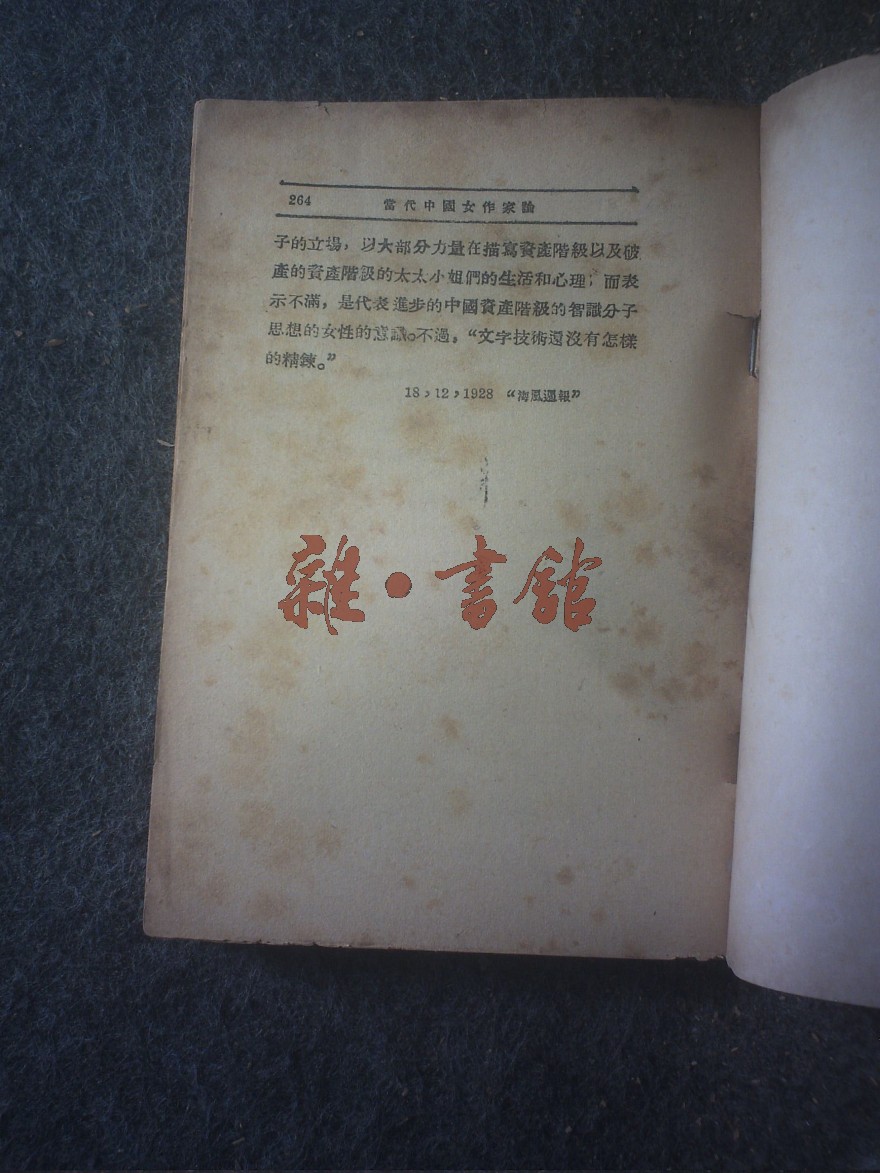 264 當代中國女作家論
子的立場，以大部分力量在描寫資產階級以及破
產的資產階級的太太小姐們的生活和心理；而表
示不滿，是代表進步的中國資產階級的智識分子
思想的女性的意識。不過，“文字技術還沒有怎樣
的精鍊。”
18，12，1928 “海風週報”
雜·書館